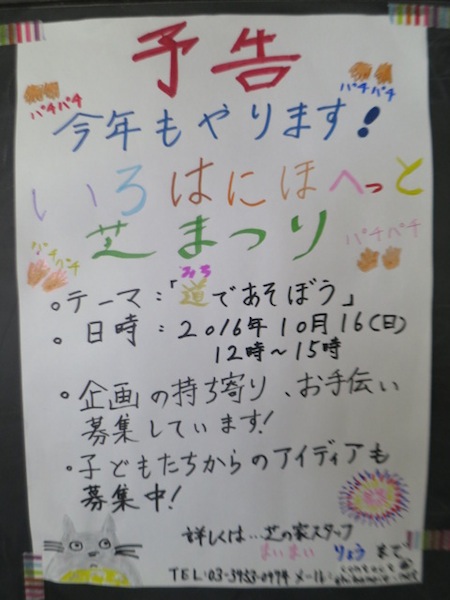 予告
パチパチ
パチパチ
今年もやります!
いろはにほへっと
芝まつり
パチパチ
パチパチ
みち
。テーマ:「道であそぼう」
。日時:2016年10月16(日)
12時~15時
。企画の持ち寄り、お手伝い
募集しています!
。子どもたちからのアイディアも
募集中!
詳しくは…芝の家スタッフ
まいまい りょう まで
TEL:03-3453-0474 メール:
contact@
shibanoie.net